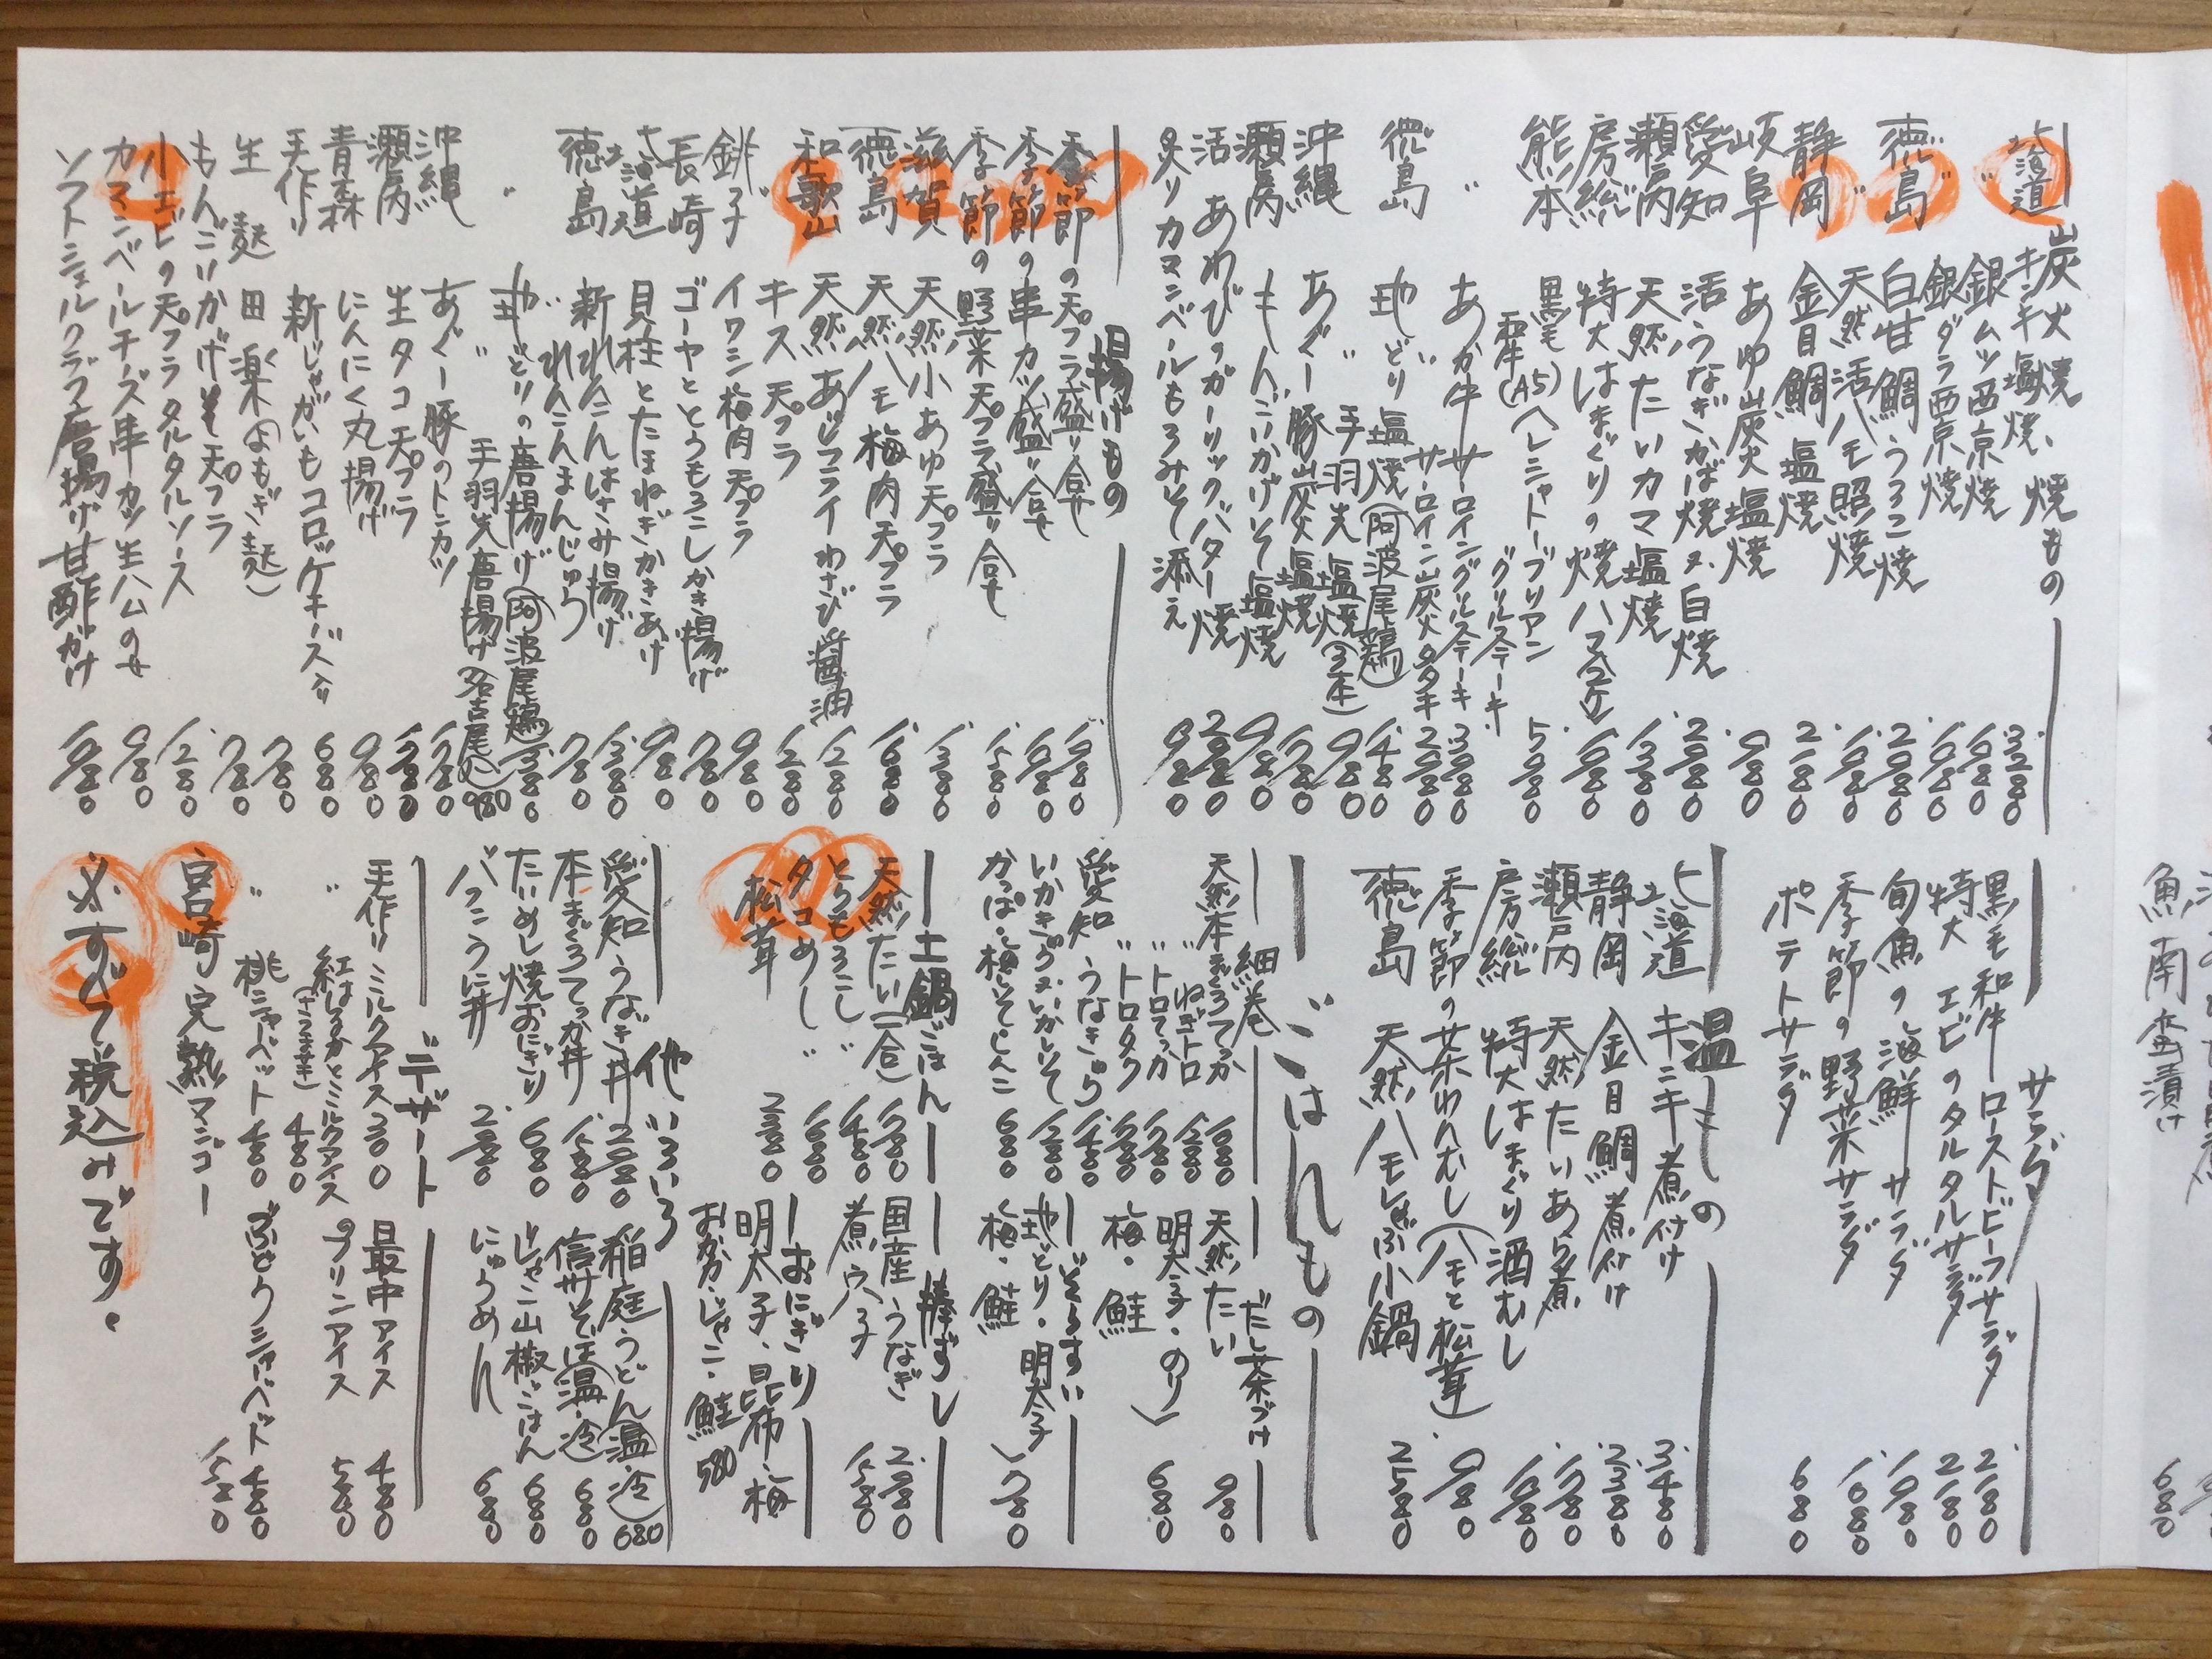 炭火焼、焼もの
北海道 キンキ塩焼 3280
〃 銀ムツ西京焼 1680
銀ダラ西京焼 1980
徳島 白甘鯛うろこ焼 2980
〃 天然活ハモ照焼 1980
静岡 金目鯛塩焼 2180
岐阜 あゆ炭火塩焼 980
愛知 活うなぎかば焼又、白焼 2980
瀬戸内 天然たいカマ塩焼 1380
房総 特大はまぐりの焼ハマ(2ケ) 1980
熊本 黒毛和牛(A5)ヘレシャトーブリアン グリルステーキ 5980
〃 あか牛 サーロイングリルステーキ 3980
サーロイン炭火タタキ 2980
徳島 地どり塩焼(阿波尾鶏) 1480
〃 手羽先塩焼(3本) 980
沖縄 あぐー豚炭火塩焼 1780
瀬戸内 もんごいかげそ塩焼 980
活あわびのガーリックバター焼 2980
炙りカマンベールもろみそ添え 980
揚げもの
季節の天プラ盛り合せ 1980
季節の串カツ盛り合せ 1980
季節の野菜天プラ盛り合せ 1580
滋賀 天然小あゆ天プラ 1380
徳島 天然ハモ梅肉天プラ 1680
和歌山 天然あじフライわさび醤油 1280
キス天プラ 1280
銚子 イワシ梅肉天プラ 980
長崎 ゴーヤととうもろこしかき揚げ 780
北海道 貝柱とたまねぎかきあげ 980
徳島 新れんこんはさみ揚げ 1380
〃 れんこんまんじゅう 780
〃 地どりの唐揚げ(阿波尾鶏) 1380
〃 手羽先唐揚げ 980
沖縄 あぐー豚のトンカツ 1780
瀬戸内 生タコ天プラ 1280
青森 にんにく丸揚げ 980
手作り 新じゃがいもコロッケチーズ入り 680
生麩田楽(よもぎ麩) 780
もんごいかげそ天プラ 780
小エビの天プラタルタルソース 1280
カマンベールチーズ串カツ生ハムのせ 980
ソフトシェルクラブ唐揚げ甘酢がけ 1980
サラダ
黒毛和牛ローストビーフサラダ 2180
特大エビのタルタルサラダ 2180
旬魚の海鮮サラダ 1980
季節の野菜サラダ 1680
ポテトサラダ 680
温もの
北海道 キンキ煮付け 3480
静岡 金目鯛煮付け 2380
瀬戸内 天然たいあら煮 1780
房総 特大はまぐり酒むし 1980
季節の茶わんむし(ハモと松茸) 980
徳島 天然ハモしゃぶ小鍋 2580
ごはんもの
細巻
天然本まぐろてっか 1680
〃 ねぎトロ 1280
〃 トロてっか 1780
〃 トロタク 1780
愛知 うなきゅう 1480
いかきゅう又、いかしそ 1280
かっぱ・梅しそ・しんこ 680
だし茶づけ
天然たい 980
明太子・のり
梅・鮭 680
ぞうすい
地どり・明太子
梅・鮭 780
土鍋ごはん
天然たい(一合) 1780
とうもろこし〃 1480
タコめし〃 1680
松茸 2380
棒ずし
国産うなぎ 2980
煮穴子 1580
おにぎり
明太子・昆布・梅
おかか・じゃこ・鮭 580
他いろいろ
愛知うなぎ丼 2980
本まぐろてっか丼 1580
たいめし焼おにぎり 680
バフンうに丼 2980
稲庭うどん(温・冷) 680
信州そば(温・冷) 680
じゃこ山椒ごはん 680
にゅうめん 680
デザート
手作りミルクアイス 300
〃 紅はるかとミルクアイス(さつま芋) 480
〃 桃シャーベット 480
宮崎 完熟マンゴー 1580
最中アイス 480
プリンアイス 580
ぶどうシャーベット 480
必すべて税込みです。
魚南蛮漬け 680